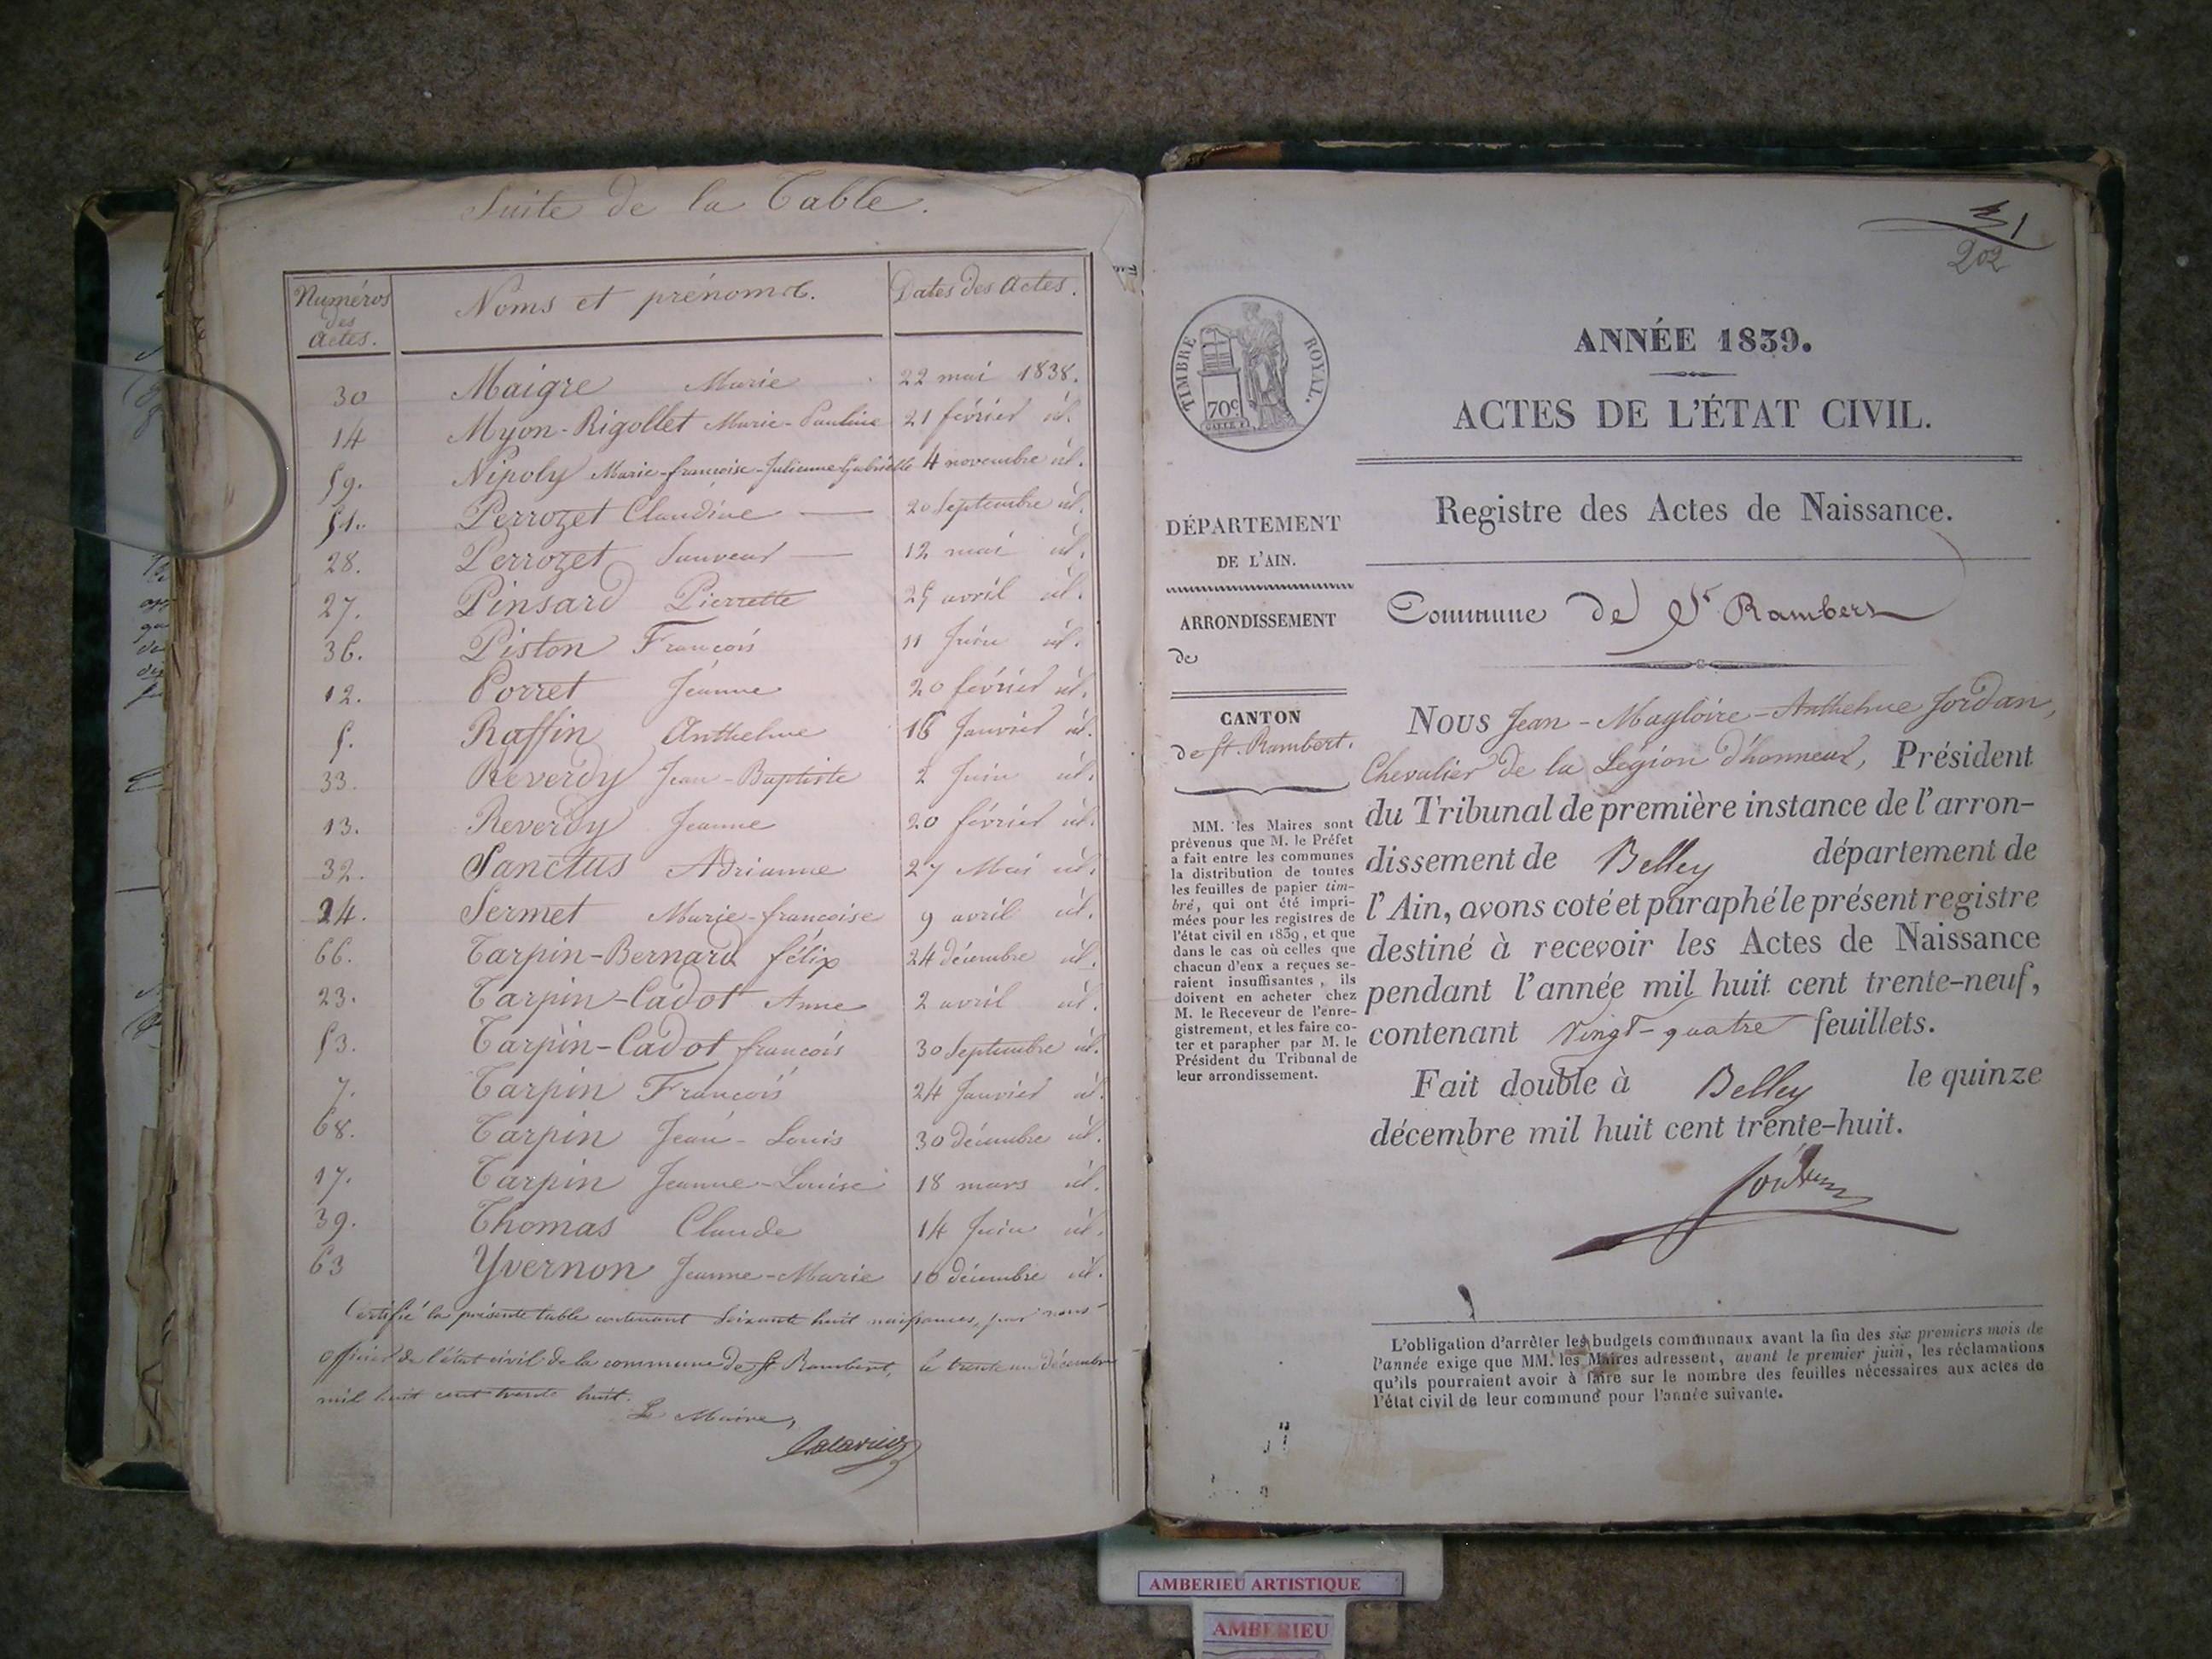 Suite de la Table.
Numéros des Actes. Noms et prénoms. Dates des Actes.
30 Maigre Marie 22 mai 1838.
14 Myon-Rigollet Marie-Pauline 21 février id.
59. Nipoly Marie-françoise-Julienne Gabrielle 4 novembre id.
51. Perrozet Claudine — 20 Septembre id.
28. Perrozet Sauveur — 12 mai id.
27. Pinsard Pierrette 25 avril id.
36. Piston François 11 Juin id.
12. Porret Jeanne 20 février id.
5. Raffin Anthelme 16 Janvier id.
33. Reverdy Jean-Baptiste 2 Juin id.
13. Reverdy Jeanne 20 février id.
32. Sanctus Adrianne 27 Mai id.
24. Sermet Marie-françoise 9 avril id.
66. Tarpin-Bernard félix 24 décembre id.
23. Tarpin-Cadot Anne 2 avril id.
53. Tarpin-Cadot françois 30 Septembre id.
7. Tarpin François 24 Janvier id.
68. Tarpin Jean-Louis 30 décembre id.
17. Tarpin Jeanne-Louise 18 mars id.
39. Thomas Claude 14 Juin id.
63 Yvernon Jeanne-Marie 10 décembre id.
Certifié la présente table contenant Soixante huit naissances, par nous
officier de l'état civil de la commune de St. Rambert, le trente un décembre
mil huit cent trente huit.
Le Maire,
202
TIMBRE ROYAL.
70c
ANNÉE 1839.
ACTES DE L'ÉTAT CIVIL.
Registre des Actes de Naissance.
DÉPARTEMENT
DE L'AIN.
ARRONDISSEMENT
de
CANTON
de St. Rambert.
MM. les Maires sont
prévenus que M. le Préfet
a fait entre les communes
la distribution de toutes
les feuilles de papier tim-
bré, qui ont été impri-
mées pour les registres de
l'état civil en 1839, et que
dans le cas où celles que
chacun d'eux a reçues se-
raient insuffisantes, ils
doivent en acheter chez
M. le Receveur de l'enre-
gistrement, et les faire co-
ter et parapher par M. le
Président du Tribunal de
leur arrondissement.
Commune de St Rambert
Nous Jean-Magloire-Anthelme Jordan,
Chevalier de la Légion d'honneur, Président
du Tribunal de première instance de l'arron-
dissement de Belley département de
l'Ain, avons coté et paraphé le présent registre
destiné à recevoir les Actes de Naissance
pendant l'année mil huit cent trente-neuf,
contenant Vingt-quatre feuillets.
Fait double à Belley le quinze
décembre mil huit cent trente-huit.
Jordan
L'obligation d'arrêter les budgets communaux avant la fin des six premiers mois de
l'année exige que MM. les Maires adressent, avant le premier juin, les réclamations
qu'ils pourraient avoir à faire sur le nombre des feuilles nécessaires aux actes de
l'état civil de leur commune pour l'année suivante.
AMBERIEU ARTISTIQUE
AMBERIEU